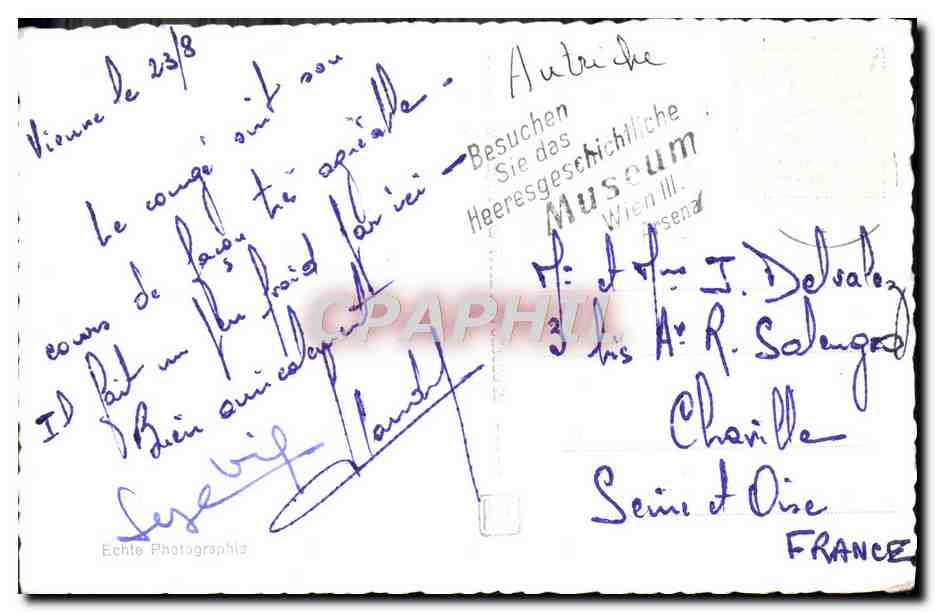 Vienne le 23/8
Le congé suit son
cours de façon très agréable -
Il fait un peu froid par ici -
Bien amicalement
Echte Photographie
Autriche
Besuchen
Sie das
Heeresgeschichtliche
Museum
Wien III.
Arsenal
CPAPHIL
Mr et Mme J. Delvalez
3 bis Av R. Salengro
Chaville
Seine et Oise
FRANCE